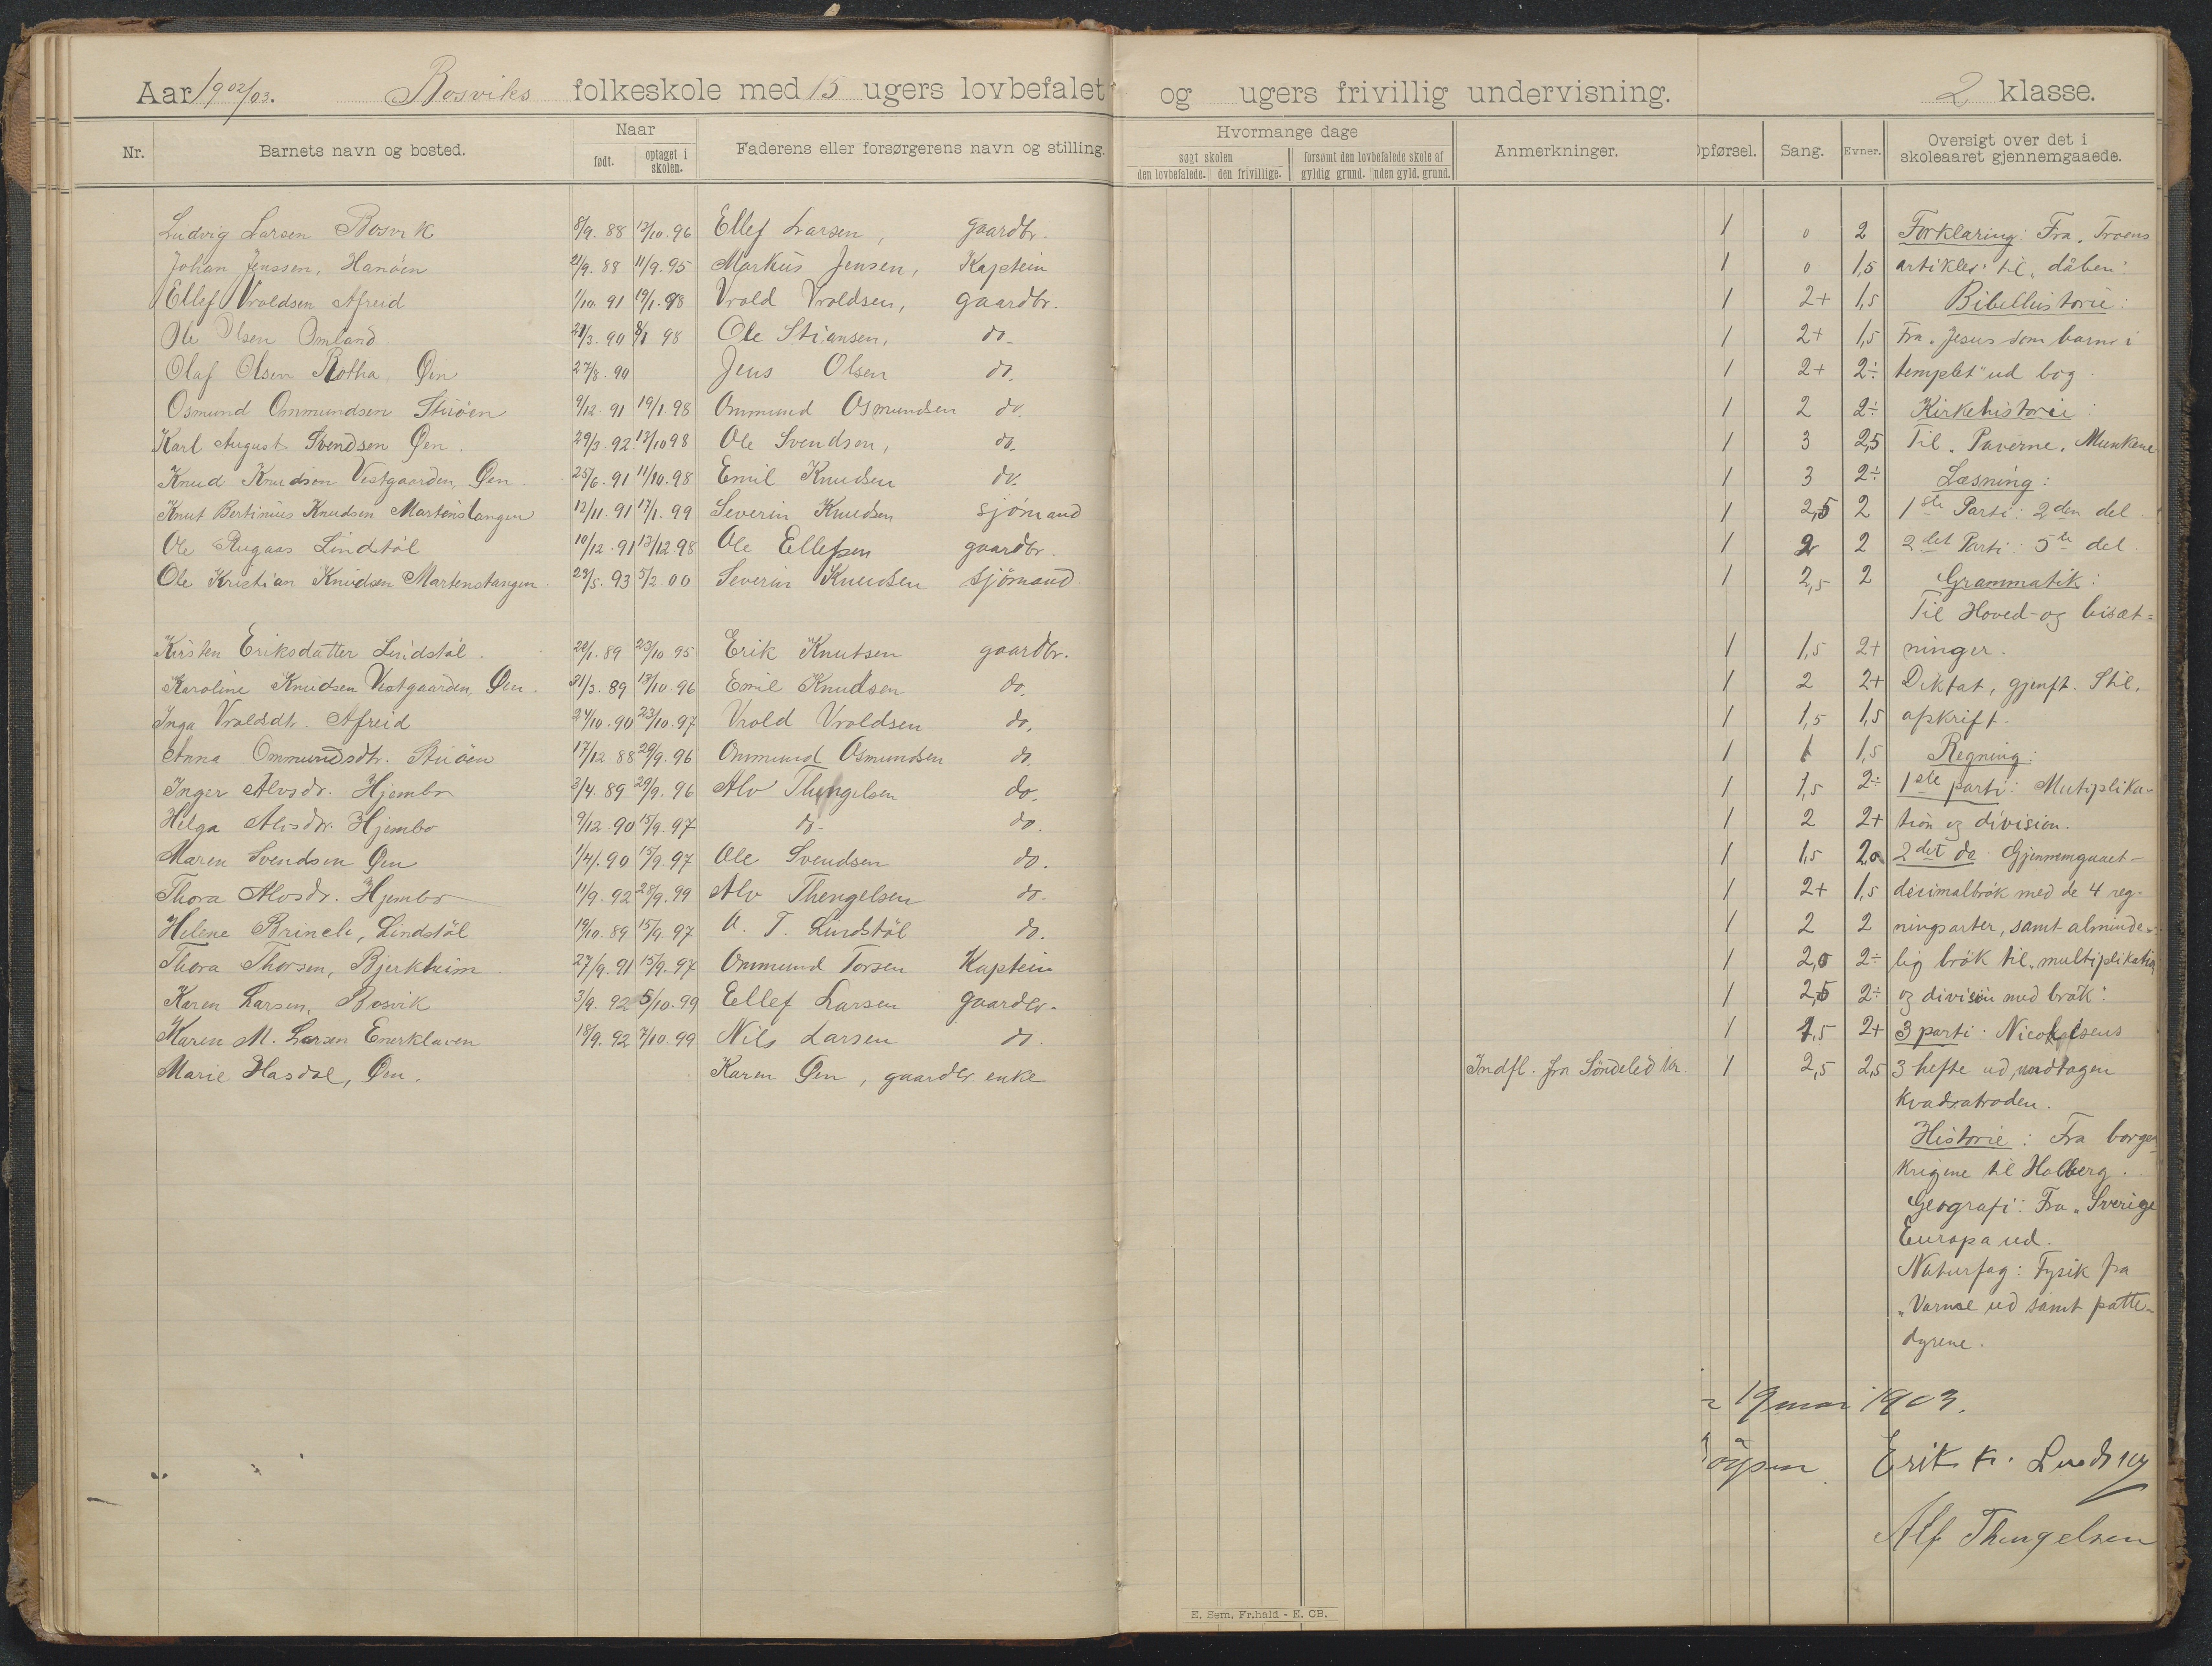 Aar 1902/03. Bosviks folkeskole med 15 ugers lovbefalet og ugers frivillig undervisning. 2 klasse.
Nr. Barnets navn og bosted. Naar født. optaget i skolen. Faderens eller forsørgerens navn og stilling. Hvormange dage søgt skolen den lovbefalede. den frivillige. forsømt den lovbefalede skole af gyldig grund. uden gyld. grund. Anmerkninger. Opførsel. Sang. Evner. Oversigt over det i skoleaaret gjennemgaaede.
Ludvig Larsen Bosvik 8/9. 88 12/10. 96 Ellef Larsen, gaardbr. 1 0 2 Forklaring: Fra „Troens
Johan Jenssen, Hanöen 21/9. 88 11/9. 95 Markus Jensen, Kaptein 1 0 1,5 artikler" til „dåben"
Ellef Vroldsen Afreid 1/10. 91 19/1. 98 Vrold Vroldsen, gaardbr. 1 2+ 1,5 Bibelhistorie:
Ole Olsen Omland 21/3. 90 8/1 98 Ole Stiansen, do. 1 2+ 1,5 Fra „Jesus som barn i
Olaf Olsen Øen 27/8. 90 Jens Olsen do. 1 2+ 2÷ templet" ud bog.
Osmund Ommundsen Stuöen 9/12. 91 19/1. 98 Ommund Osmundsen do. 1 2 2÷ Kirkehistorie:
Karl August Svendsen Øen. 29/3. 92 13/10 98 Ole Svendsen, do. 1 3 2,5 Til „Paverne, Munkene
Knud Knudsen Vestgaarden, Øen. 25/6. 91 11/10. 98 Emil Knudsen do. 1 3 2÷ Læsning:
Knut Bertinius Knudsen Martenstangen 12/11. 91 17/1. 99 Severin Knudsen sjömand 1 2,5 2 1ste Parti: 2den del
Ole Rugaas Lindstöl 10/12. 91 13/12. 98 Ole Ellefsen gaardbr. 1 2 2 2det Parti: 5te del.
Ole Kristian Knudsen Martenstangen. 23/5. 93 5/2. 00 Severin Knudsen sjömand. 1 2,5 2 Grammatik:
Til Hoved- og bisæt=
Kirsten Eriksdatter Lindstöl. 22/1. 89 23/10 95 Erik Knutsen gaardbr. 1 1,5 2+ ninger.
Karoline Knudsen Vestgaarden, Øen. 31/3. 89 13/10. 96 Emil Knudsen do. 1 2 2+ Diktat, gjenft. Stil,
Inga Vroldsdt. Afreid 24/10. 90 23/10. 97 Vrold Vroldsen do. 1 1,5 1,5 afskrift.
Anna Ommundsdt. Stuöen 17/12. 88 29/9. 96 Ommund Osmundsen do. 1 1 1,5 Regning:
Inger Alvsdr. Hjembo 3/4. 89 29/9. 96 Alv Thengelsen do. 1 1,5 2÷ 1ste parti: Mutiplika-
Helga Alvsdr. Hjembo 9/12. 90 15/9. 97 do. do. 1 2 2+ tion og division.
Maren Svendsen Øen 1/4. 90 15/9. 97 Ole Svendsen do. 1 1,5 2,0 2det do. Gjennemgaaet
Thora Alvsdr. Hjembo 11/9. 92 28/9. 99 Alv Thengelsen do. 1 2+ 1,5 decimalbrøk med de 4 reg-
Helene Brinch, Lindstöl 19/10. 89 15/9. 97 A. T. Lindstöl do. 1 2 2 ningsarter, samt alminde-
Thora Thorsen, Bjerkheim. 27/9. 91 15/9. 97 Ommund Torsen Kaptein 1 2,0 2÷ lig brök til „multiplikation
Karen Larsen, Bosvik 3/9. 92 5/10. 99 Ellef Larsen gaardbr. 1 2,5 2÷ og division med brök".
Karen M. Larsen Enerklaven 18/9. 92 7/10. 99 Nils Larsen do. 1 1,5 2+ 3 parti: Nicolaisens
Marie Hasdal, Øen. Karen Øen, gaardbr enke Indfl. fra Söndeled kr. 1 2,5 2,5 3 hefte ud, undtagen
kvadratroden.
Historie: Fra borger-
krigene til Holberg.
Geografi: Fra „Sverige
Europa ud.
Naturfag: Fysik fra
„Varme ud samt patte-
dyrene.
19 mai 1903.
Erik K.
Alf Thengelsen
E. Sem, Fr.hald - E. CB.